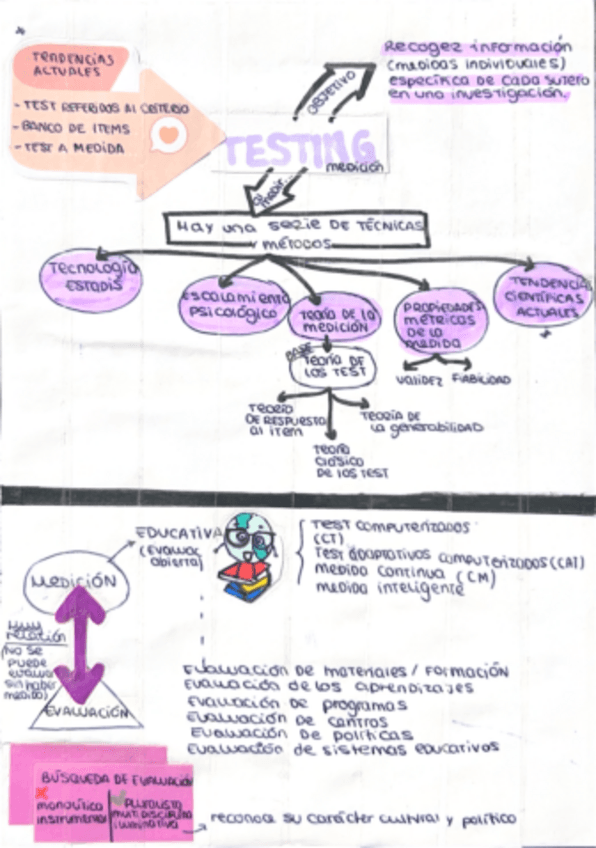 TENDENCIAS
ACTUALES
- TEST REFERIDOS AL CRITERIO
- BANCO DE ITEMS
- TEST A MEDIDA
OBJETIVO
Recoger información
(medidas individuales)
específica de cada sujeto
en una investigación.
TESTING
medición
medir...
Hay una serie DE TÉCNICAS
y métodos
Tecnología
ESTADIS
Escalamiento
psicológico
Teoría DE LA
medición
PROPIEDADES
métricas
DE LA
medida
TENDENCIAS
CIENTÍFICAS
ACTUALES
*
BASE
Teoría DE
LOS TEST
VALIDEZ
FIABILIDAD
Teoría
DE RESPUESTA
al item
Teoría DE
La generabilidad
Teoría
clásica
DE LOS TEST
EDUCATIVA
(Evaluac
abierta)
TEST COMPUTERIZADOS
(CT)
TEST ADAPTATIVOS COMPUTERIZADOS (CAT)
medida continua (CM)
medida inteligente
MEDICIÓN
relación
(NO SE
PUEDE
evaluar
sin haber
medido)
EVALUACIÓN
Evaluación DE materiales / FORMACIÓN
Evaluación de los aprendizajes
Evaluación DE programas
Evaluación DE centros
Evaluación DE políticas
Evaluación de sistemas educativos
BÚSQUEDA DE EVALUACIÓN
monolítica
instrumental
PLURALISTA
multidisciplina
iluminativa
reconoce su carácter cultural y político